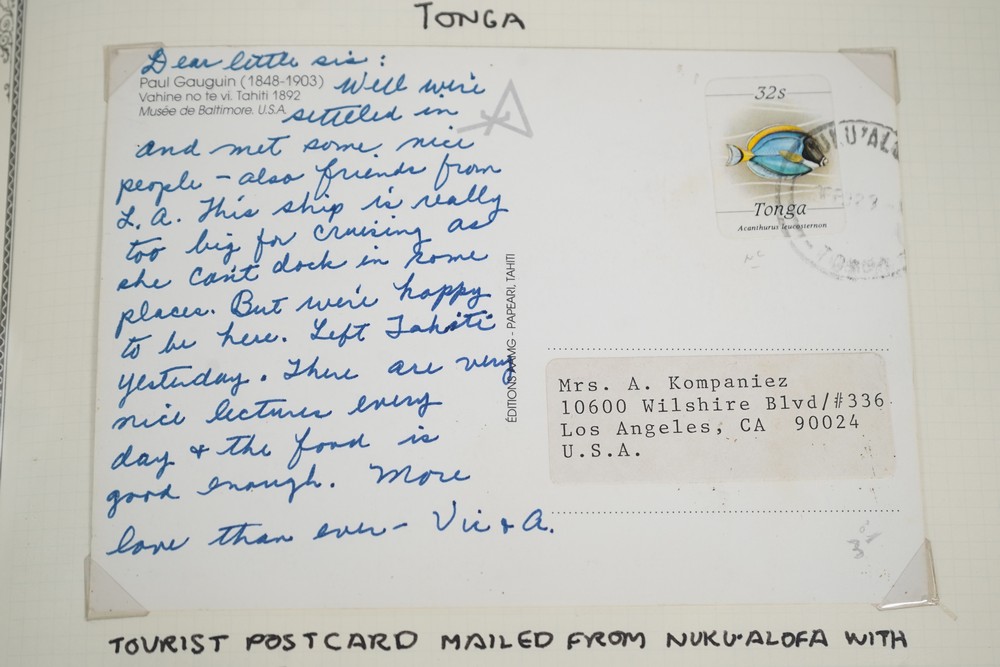 TONGA
Dear little sis:
Paul Gauguin (1848-1903)
Vahine no te vi. Tahiti 1892
Musée de Baltimore. U.S.A.
Well we're
setteled in
and met some nice
people - also friends from
L.A. This ship is really
too big for cruising as
she can't dock in some
places. But we're happy
to be here. Left Tahiti
yesterday. There are very
nice lectures every
day & the food is
good enough. More
love than ever - Vic & A.
ÉDITIONS - PAPEARI, TAHITI
32s
Tonga
Acanthurus leucosternon
NUKU'AL
TONGA
Mrs. A. Kompaniez
10600 Wilshire Blvd/#336
Los Angeles, CA 90024
U.S.A.
TOURIST POSTCARD MAILED FROM NUKU'ALOFA WITH